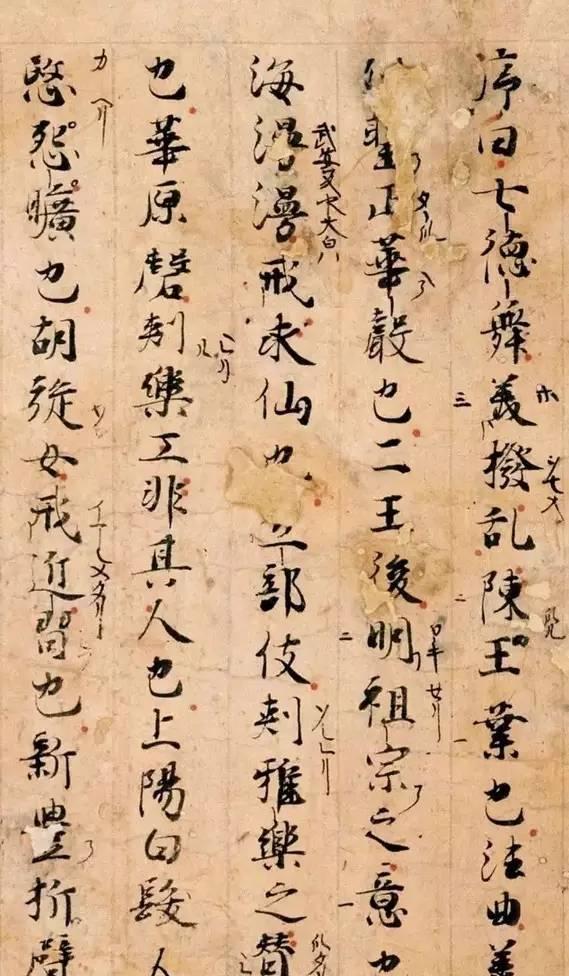 序曰七德舞美撥乱陳王業也法曲美
聖正華聲也二王後明祖宗之意也
海漫漫戒求仙也立部伎刺雅樂之替
也華原磬刺樂工非其人也上陽白髮人
愍怨曠也胡旋女戒近習也新豊折臂